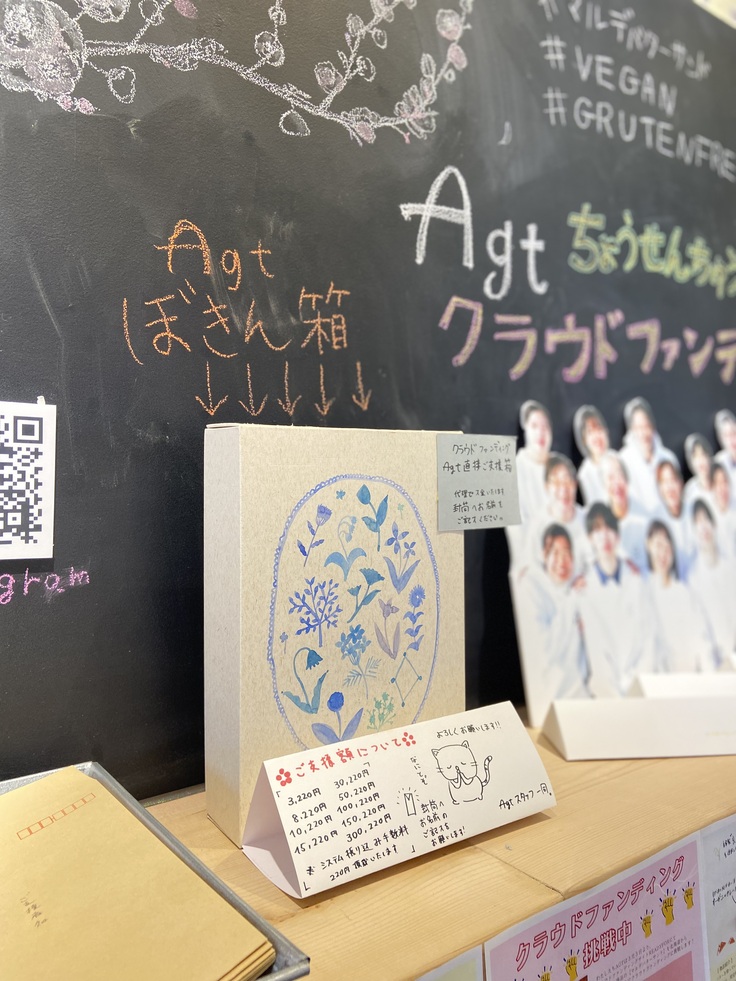 #マルデパワーサンド
#VEGAN
#GRUTENFRE
Agt
ちょうせんちゅう
クラウドファンデ
Agt
ぼきん箱
↓↓↓↓↓
gram
クラウドファンディング
Agt直接ご支援箱
代理で入金いたします
封筒へお名前を
ご記入ください。
ご支援額について
よろしくお願いします!!
「
3,220円 30,220円
8,220円 50,220円
10,220円 100,220円
15,220円 150,220円
300,220円
※システム振り込み手数料
220円頂戴いたします
」
封筒へ
お名前の
ご記入を
お願いします!
Agtスタッフ一同。
クラウドファンディング
挑戦中